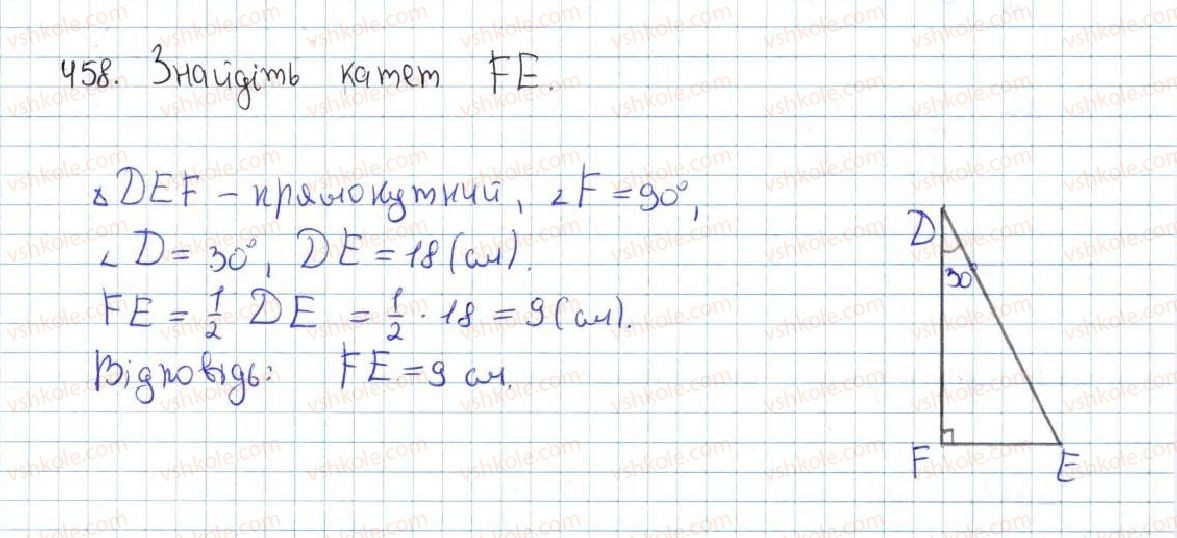 458. Знайдіть катет FE.
△DEF – прямокутний, ∠F = 90°,
∠D = 30°, DE = 18 (см).
FE = 1/2 DE = 1/2 · 18 = 9 (см).
Відповідь: FE = 9 см.
D
30°
F
E
vshkole.com